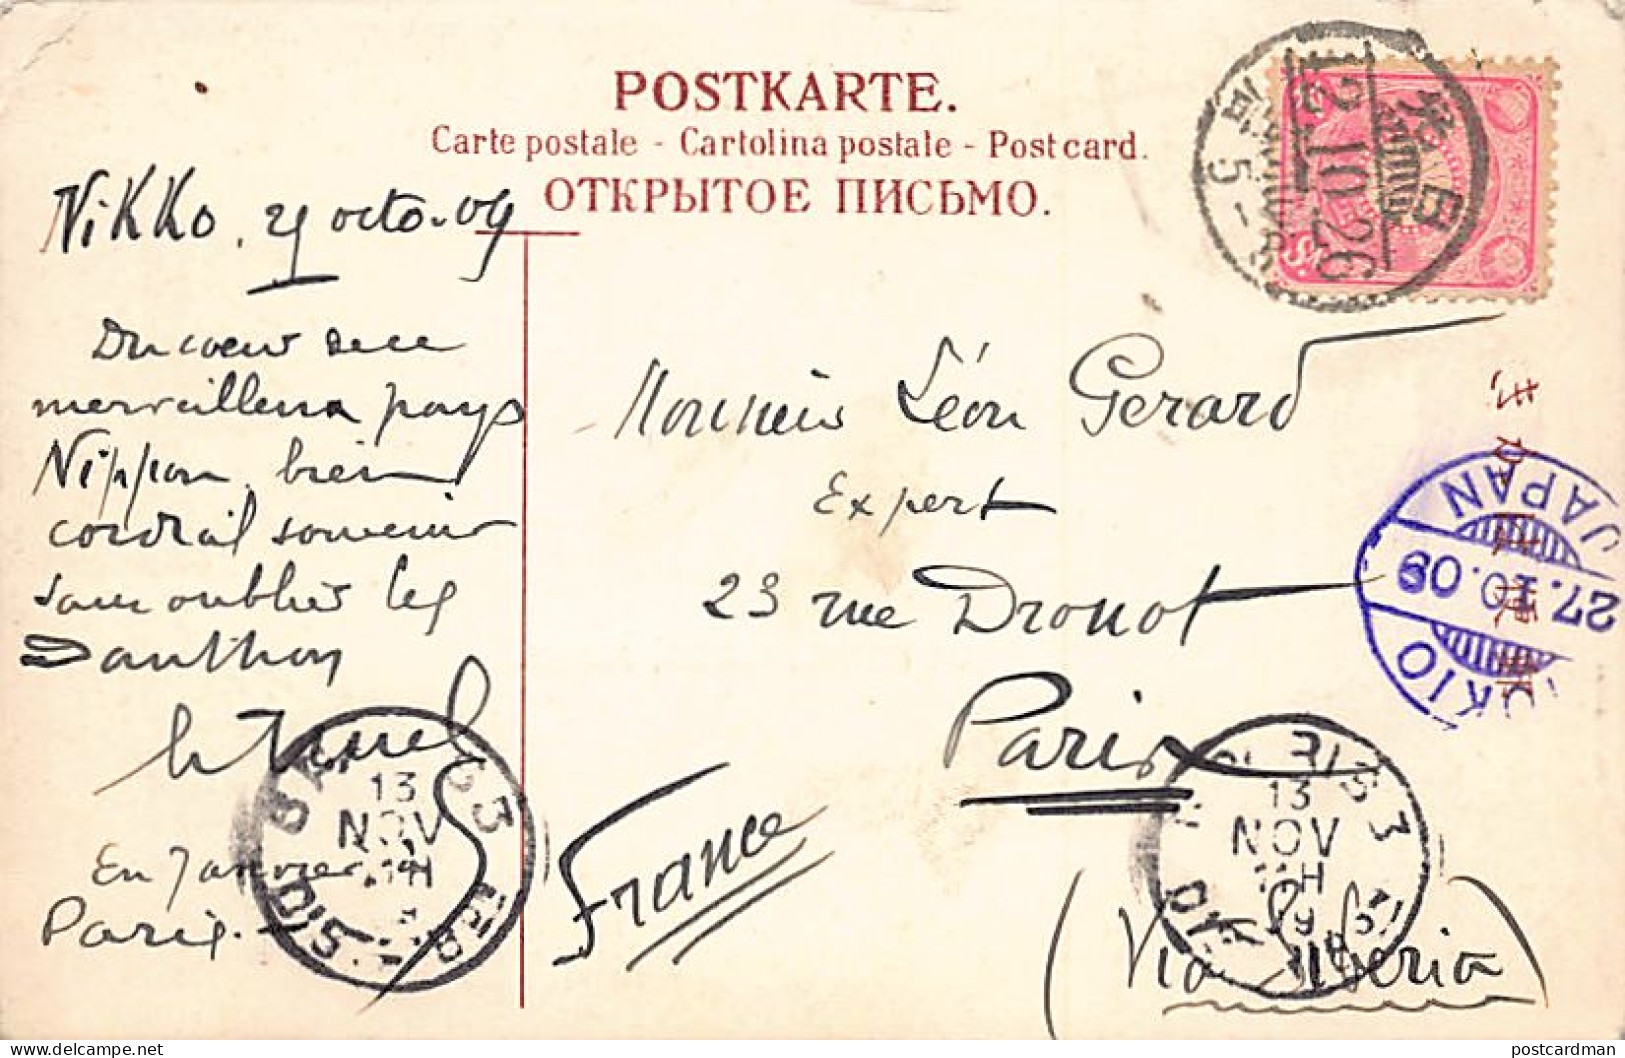 POSTKARTE.
Carte postale - Cartolina postale - Postcard.
ОТКРЫТОЕ ПИСЬМО.
Nikko, octo. 09
Du cœur de ce
merveilleux pays
Nippon, bien
cordial souvenir
sans oublier les
Danthon
En Janvier
Paris.
Monsieur Léon Gerard
Expert
23 rue Drouot
Paris
France
(Via Siberia)
12.10.26
5-8
JAPAN
27.10.09
TOKIO
13
NOV
13
NOV
postcardman